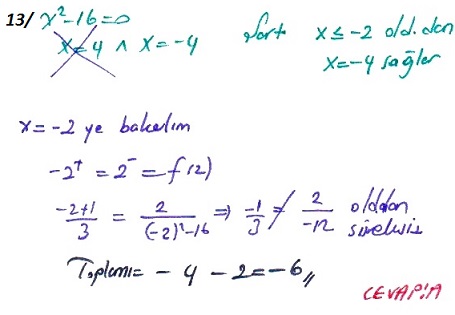 13/ x²-16=0
x=4 ∧ x=-4
Şart x ≤ -2 old.dan
x=-4 sağlar
x=-2 ye bakalım
-2⁺ = 2⁻ = f(2)
-2+1/3 = 2/(-2)²-16 ⇒ -1/3 ≠ 2/-12 olddan süreksiz
Toplamı= -4-2=-6,,
CEVAP:A